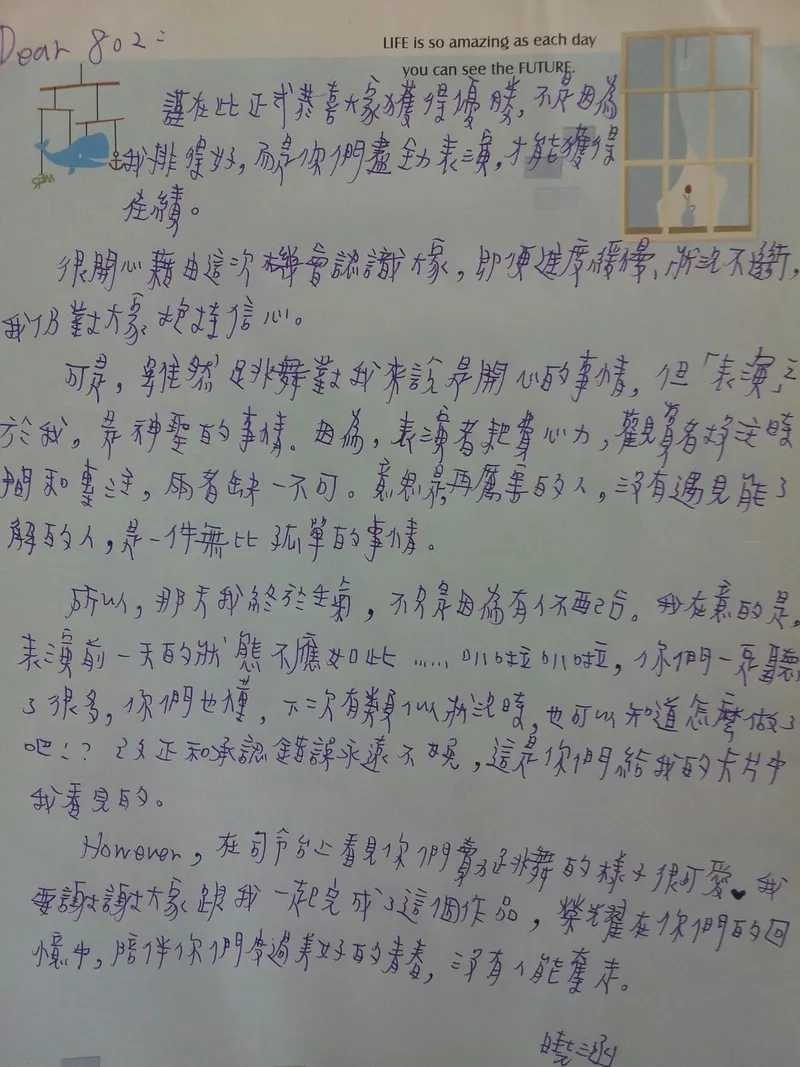 Dear 802:
LIFE is so amazing as each day
you can see the FUTURE.
謹在此正式恭喜大家獲得優勝，不是因為
我排得好，而是你們盡全力表演，才能獲得
佳績。
很開心藉由這次機會認識大家，即便進度緩慢、狀況不斷，
我仍對大家抱持信心。
可是，雖然跳舞對我來說是開心的事情，但「表演」之
於我，是神聖的事情。因為，表演者耗費心力，觀賞者將注時
間和專注，兩者缺一不可。意思是再厲害的人，沒有遇見能了
解的人，是一件無比孤單的事情。
所以，那天我終於生氣，不只是因為有人不配合。我在意的是，
表演前一天的狀態不應如此……叭啦叭啦，你們一定聽
了很多，你們也懂，下次有類似狀況時，也可以知道怎麼做了
吧！？改正和承認錯誤永遠不晚，這是你們給我的卡片中
我看見的。
However，在司令台上看見你們賣力跳舞的樣子很可愛♥我
要謝謝大家跟我一起完成了這個作品，榮耀在你們的回
憶中，陪伴你們度過美好的青春，沒有人能奪走。
曉涵